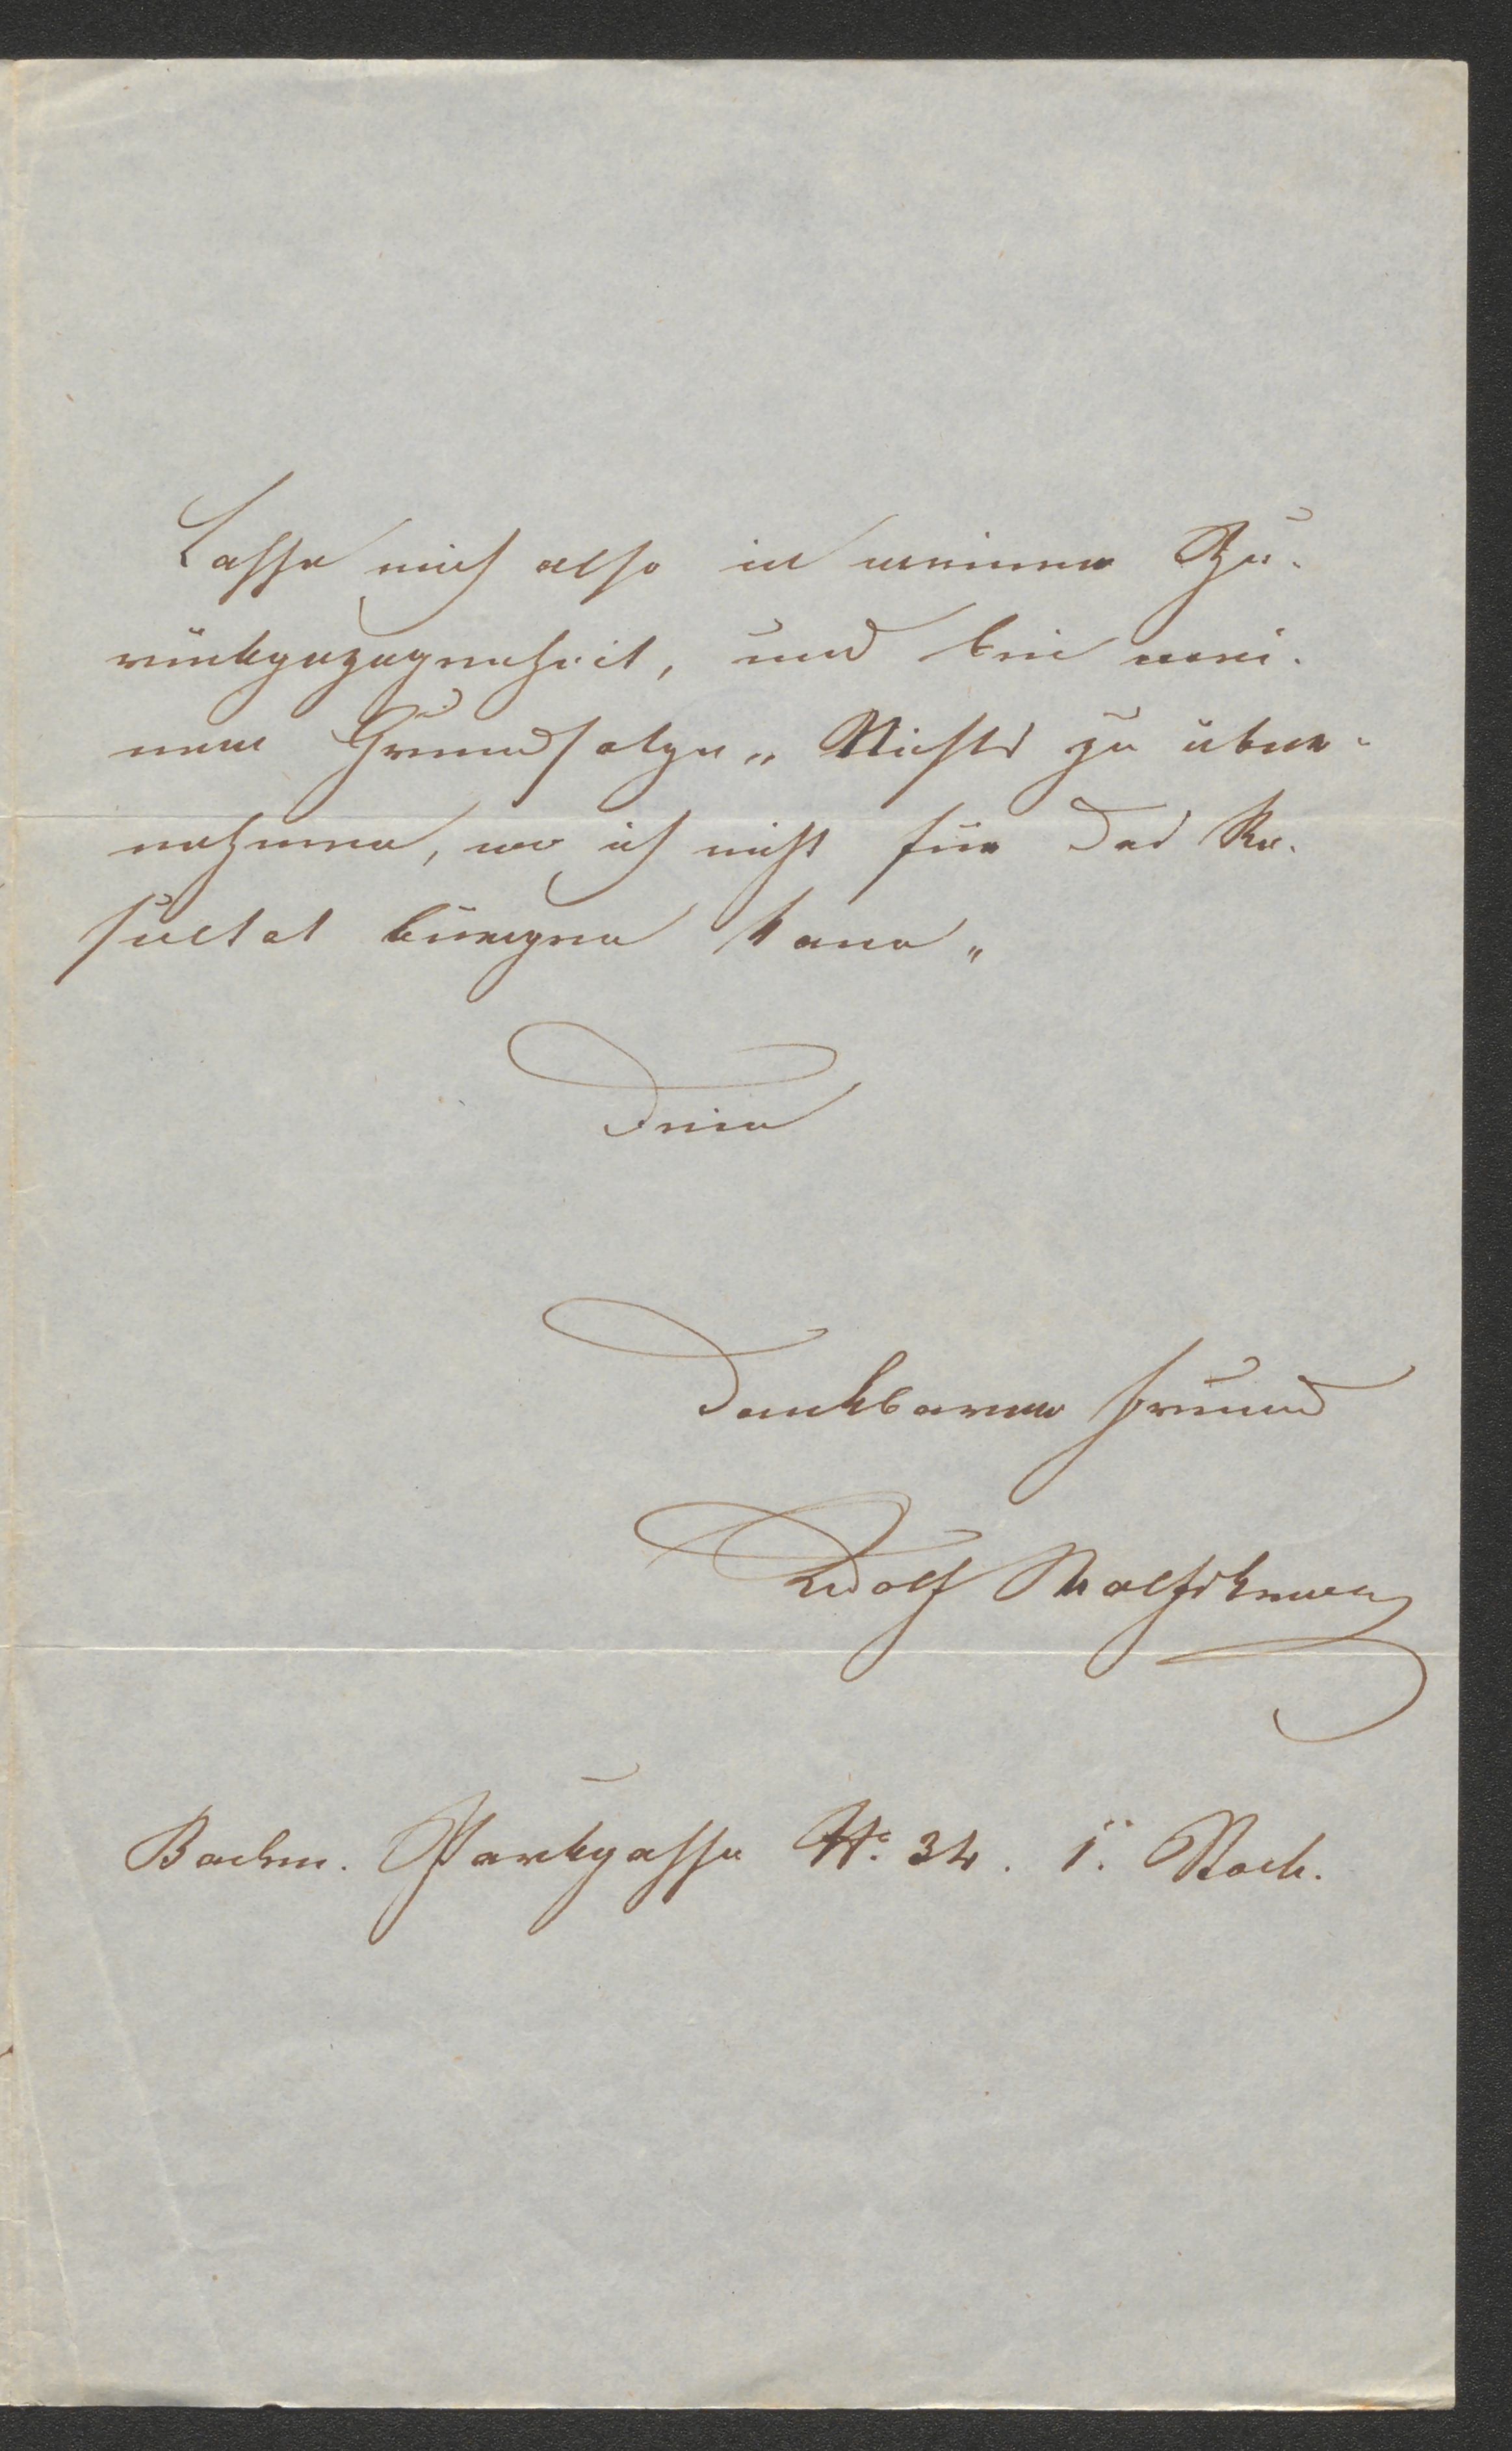 Lasse mich also in meiner Zu-
rückgezogenheit, und bei mei-
nem Grundsatze „Nichts zu über-
nehmen, wo ich nicht für das Re-
sultat bürgen kann"
Dein
dankbarer Freund
Adolf
Baden. Parkgasse No. 34. 1. Stock.